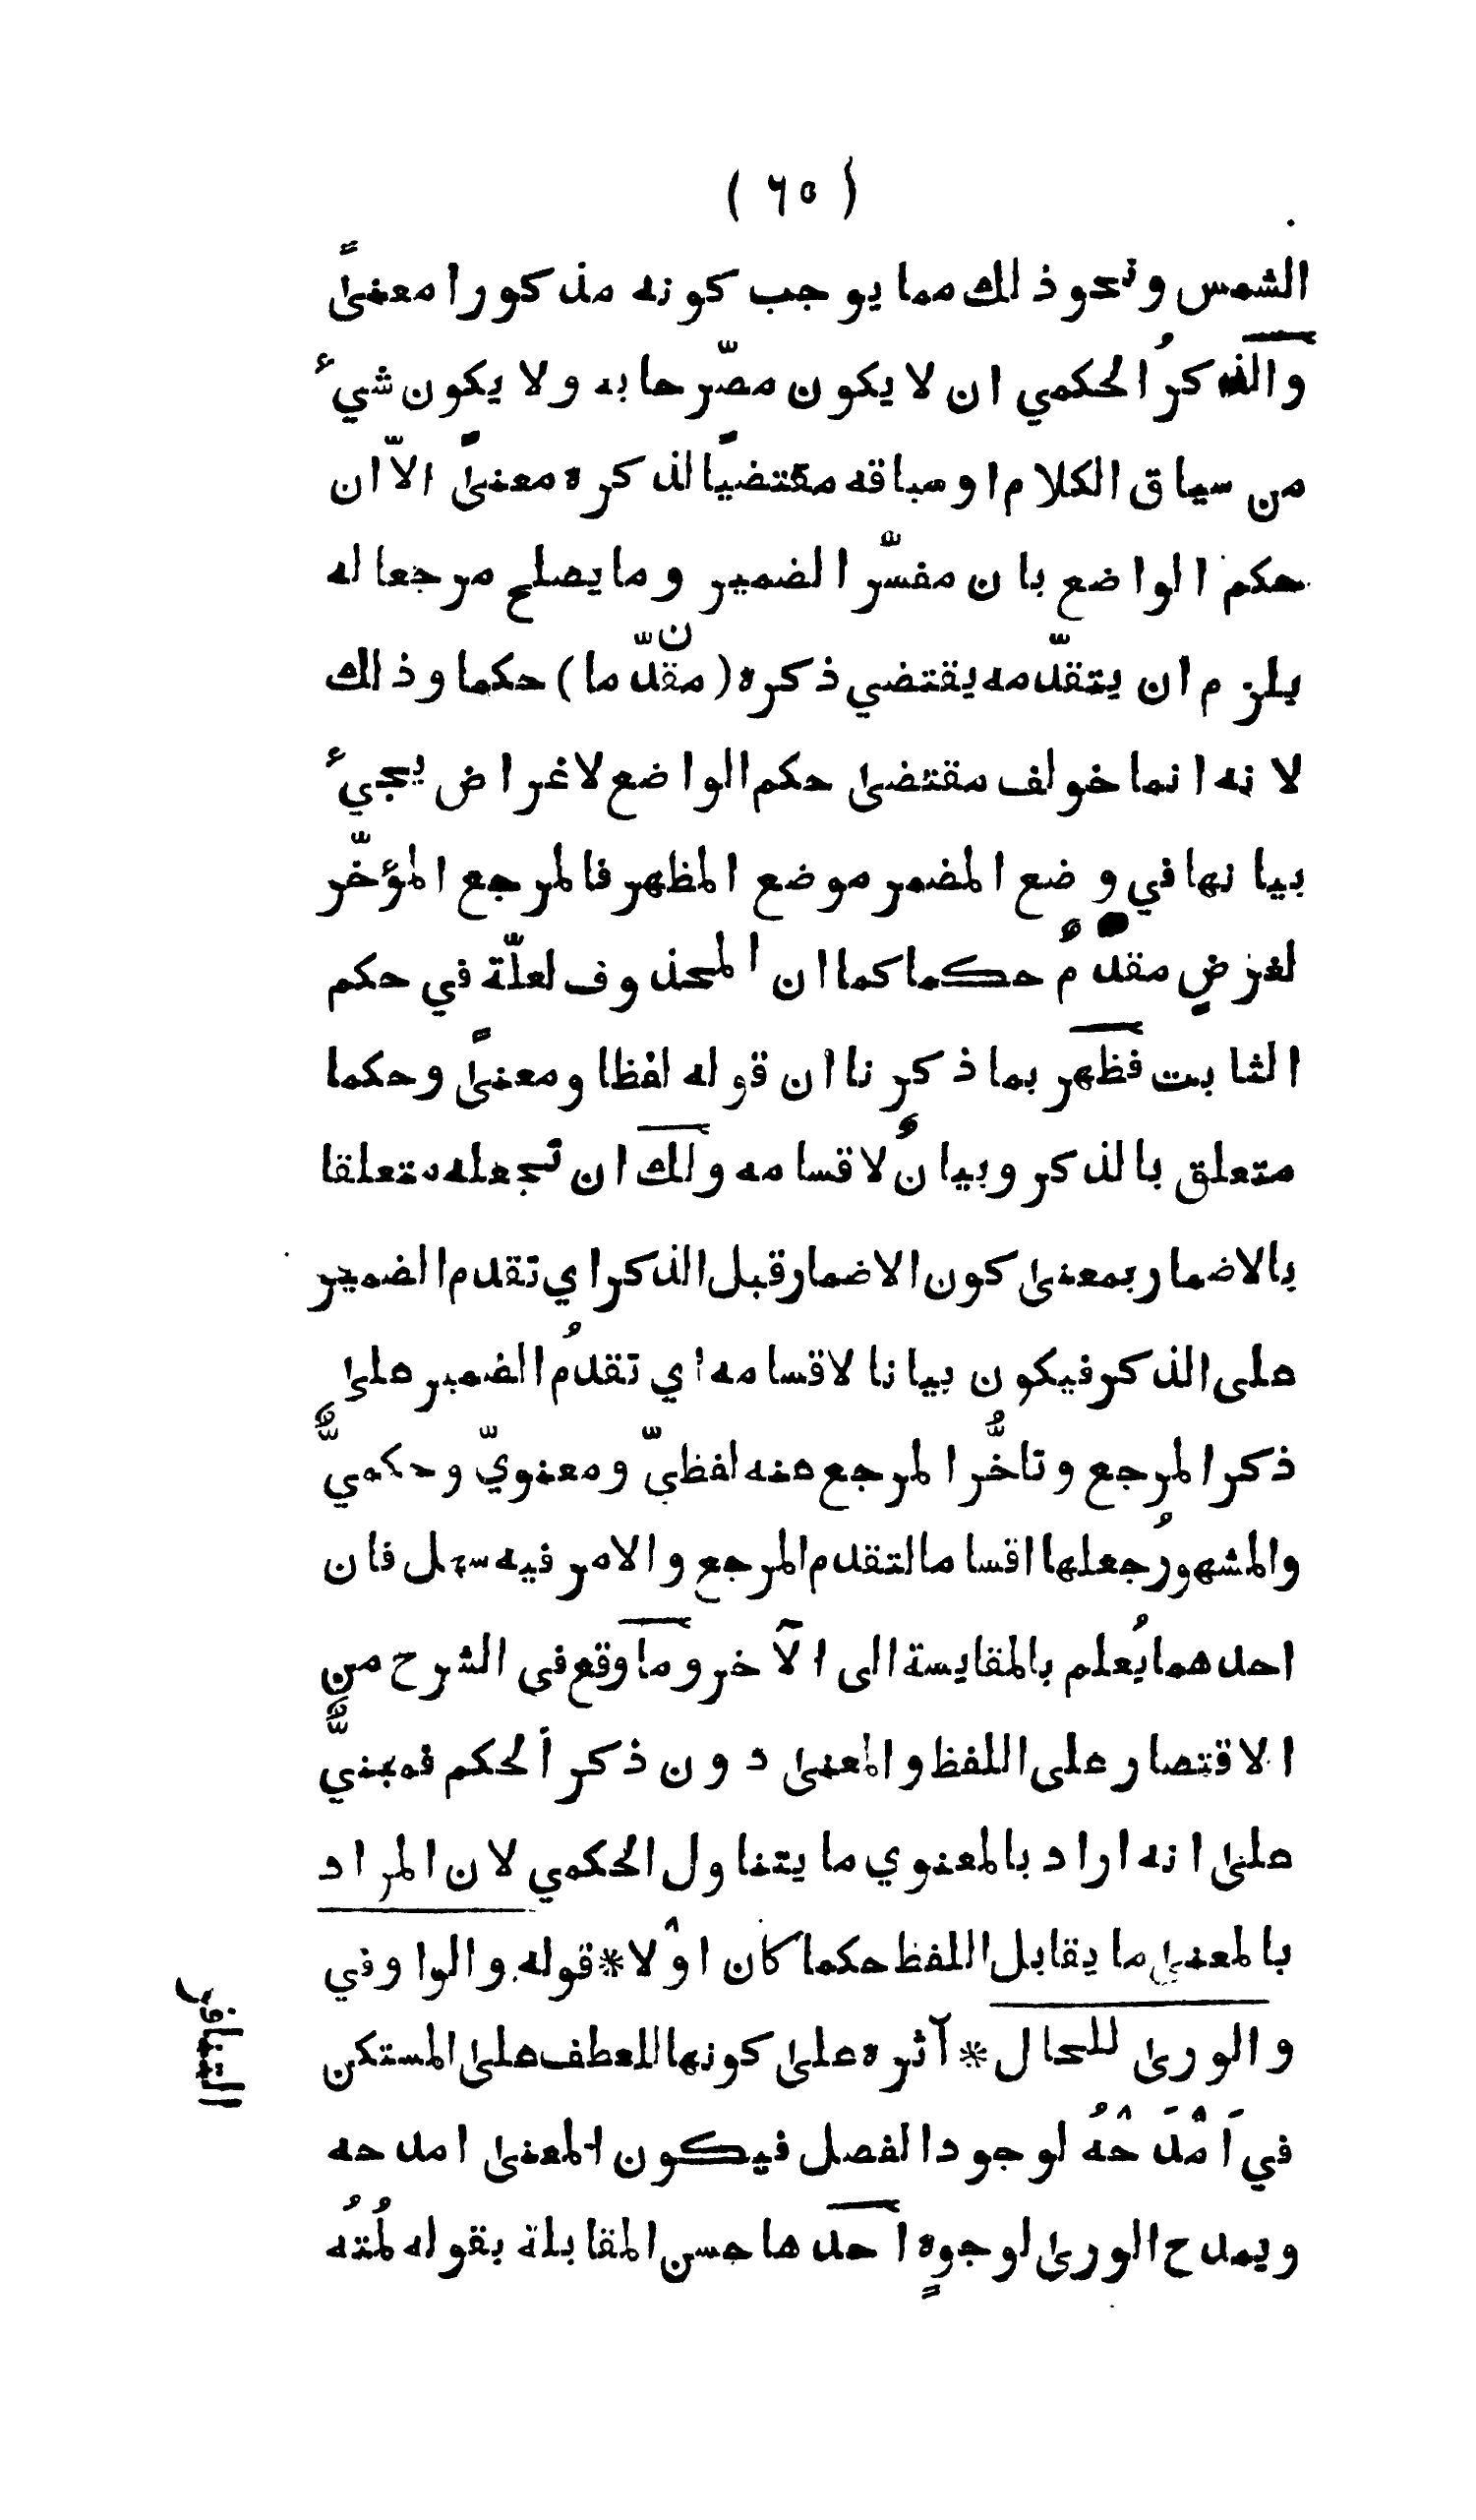 ( ٦٥ )
الشمس ونحو ذلك مما يوجب كونه مذكورا معنىً
والذكرُ الحكمي ان لا يكون مصّرحا به ولا يكون شيءٌ
من سياق الكلام او سباقه مقتضيًا لذكره معنىً الاّ ان
حكم الواضع بان مفسّر الضمير وما يصلح مرجعا له
يلزم ان يتقدّمه يقتضي ذكره (مقدّما) حكما وذلك
لانه انما خولف مقتضىٰ حكم الواضع لاغراض يجيءُ
بيانها في وضع المضمر موضع المظهر فالمرجع المؤخّر
لغرضٍ مقدمٌ حكما كما ان المحذوف لعلّة في حكم
الثابت فظهر بما ذكرنا ان قوله لفظا ومعنىً وحكما
متعلق بالذكر وبيانٌ لاقسامه ولك ان تجعله متعلقا
بالاضمار بمعنىٰ كون الاضمار قبل الذكر اي تقدم الضمير
على الذكر فيكون بيانا لاقسامه اي تقدمُ الضمير علىٰ
ذكر المرجع وتاخُّر المرجع عنه لفظيّ ومعنويّ وحكميٌّ
والمشهورُ جعلها اقساما لتقدم المرجع والامر فيه سهل فان
احدهما يُعلم بالمقايسة الى الآخر وما وقع في الشرح من
الاقتصار على اللفظ والمعنىٰ دون ذكر الحكم فمبنيٌّ
علىٰ انه اراد بالمعنوي ما يتناول الحكمي لان المراد
بالمعنىٰ ما يقابل اللفظ حكما كان اوْ لا * قوله والواو في
والورىٰ للحال * آثره علىٰ كونها للعطف علىٰ المستكن
في اَمْدَحْهُ لوجود الفصل فيكون المعنىٰ امدحه
ويمدح الورىٰ لوجوهٍ احدها حسن المقابلة بقوله لُمتُه
التنافر